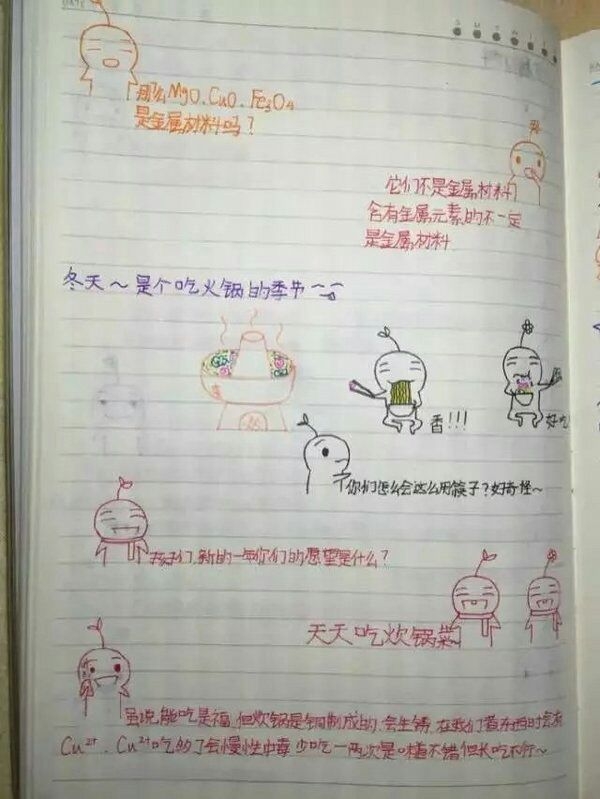 那么MgO、CuO、Fe3O4
是金属材料吗？
它们不是金属材料
含有金属元素的不一定
是金属材料
冬天～是个吃火锅的季节
香!!!
好吃
你们怎么会这么用筷子？好奇怪～
孩子们，新的一年你们的愿望是什么？
天天吃炊锅菜
虽说能吃是福，但炊锅是铜制成的，会生锈，在我们煮东西时会有
Cu²⁺、Cu²⁺吃的了会慢性中毒 少吃一两次是味道不错但长吃不行～